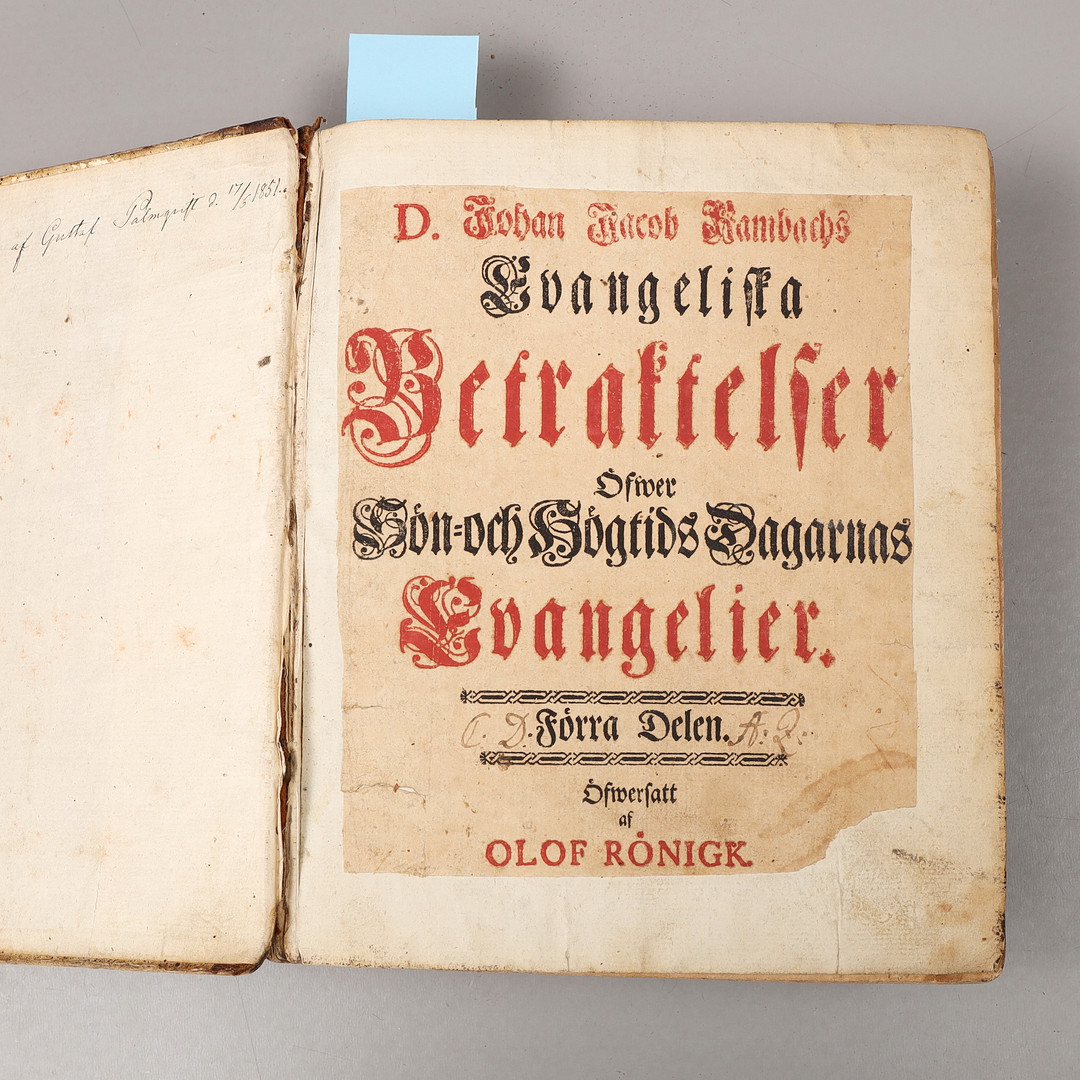 af Gustaf Palmquist d. 17/5 1851.
D. Johan Jacob Rambachs
Evangeliska
Betraktelser
Öfwer
Sön-och Högtids Dagarnas
Evangelier.
C. D. Förra Delen. A: Q:
Öfwersatt
af
OLOF RÖNIGK.